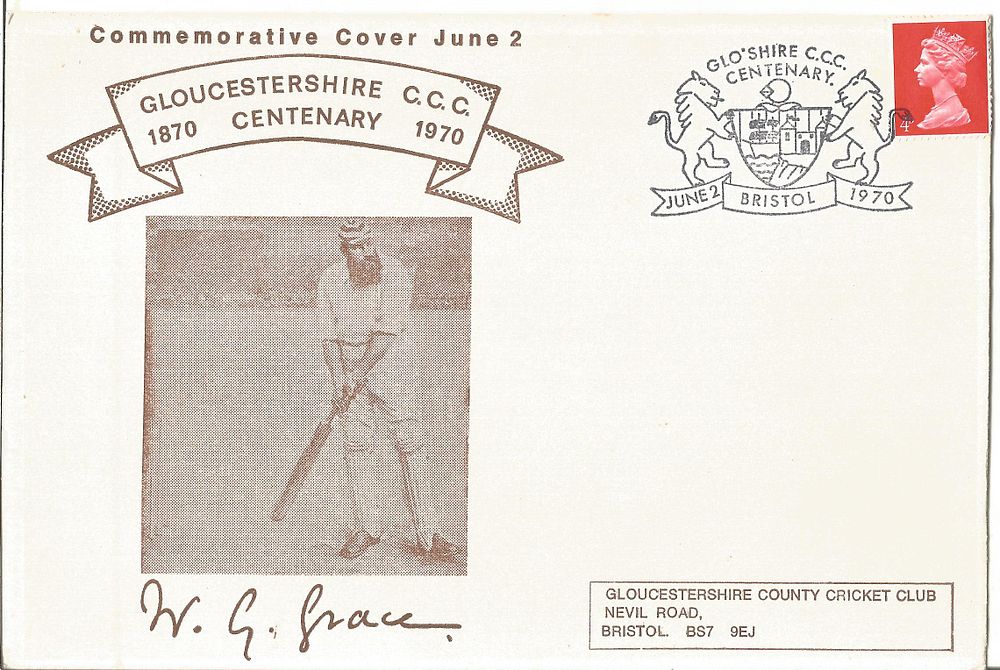 Commemorative Cover June 2
GLOUCESTERSHIRE C.C.C.
1870 CENTENARY 1970
GLO'SHIRE C.C.C.
CENTENARY.
JUNE 2 BRISTOL 1970
4D
W. G. Grace.
GLOUCESTERSHIRE COUNTY CRICKET CLUB
NEVIL ROAD,
BRISTOL. BS7 9EJ